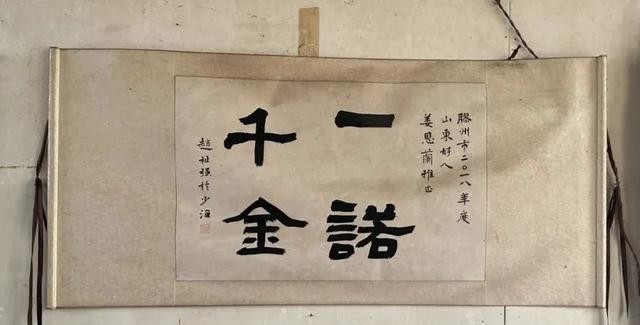 膠州市二〇一八年度
山東好人
姜思蘭雅正
一諾
千金
趙祖強於少海